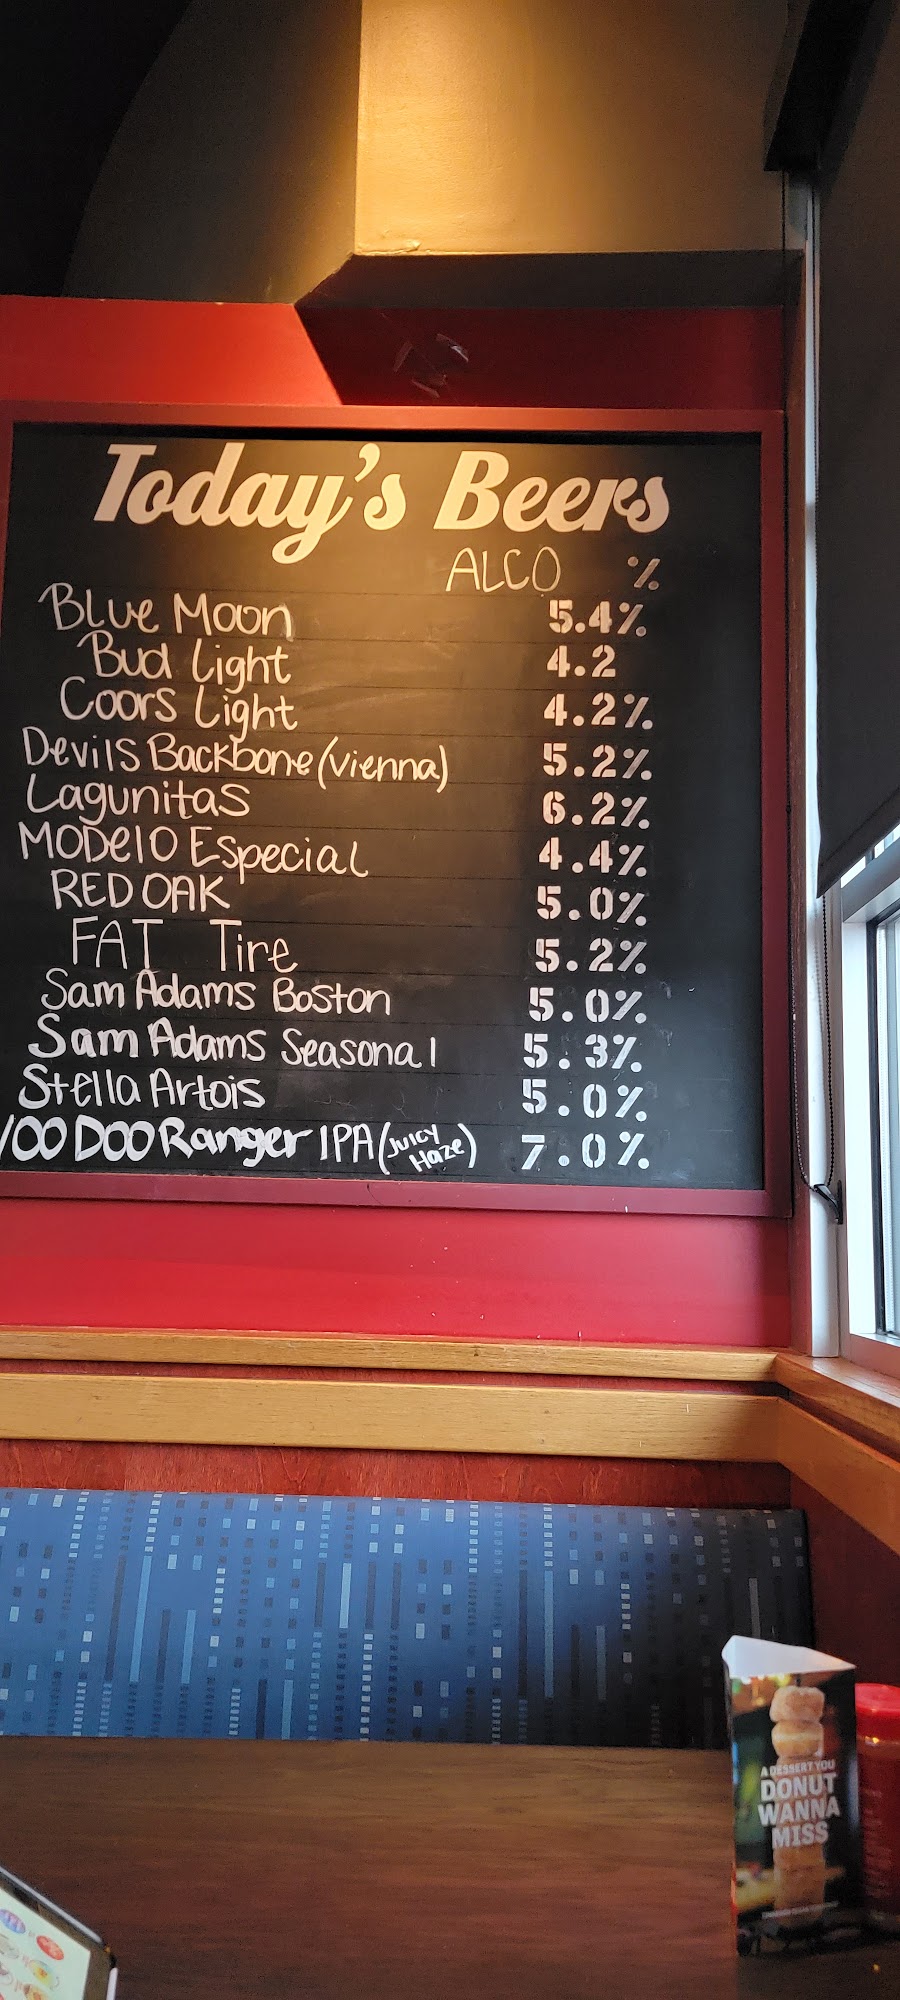 Today's Beers
ALCO %
Blue Moon 5.4%
Bud Light 4.2
Coors Light 4.2%
Devils Backbone (vienna) 5.2%
Lagunitas 6.2%
MODelO Especial 4.4%
RED OAK 5.0%
FAT Tire 5.2%
Sam Adams Boston 5.0%
Sam Adams Seasonal 5.3%
Stella Artois 5.0%
VOO DOO Ranger IPA (Juicy Haze) 7.0%
A DESSERT YOU
DONUT
WANNA
MISS